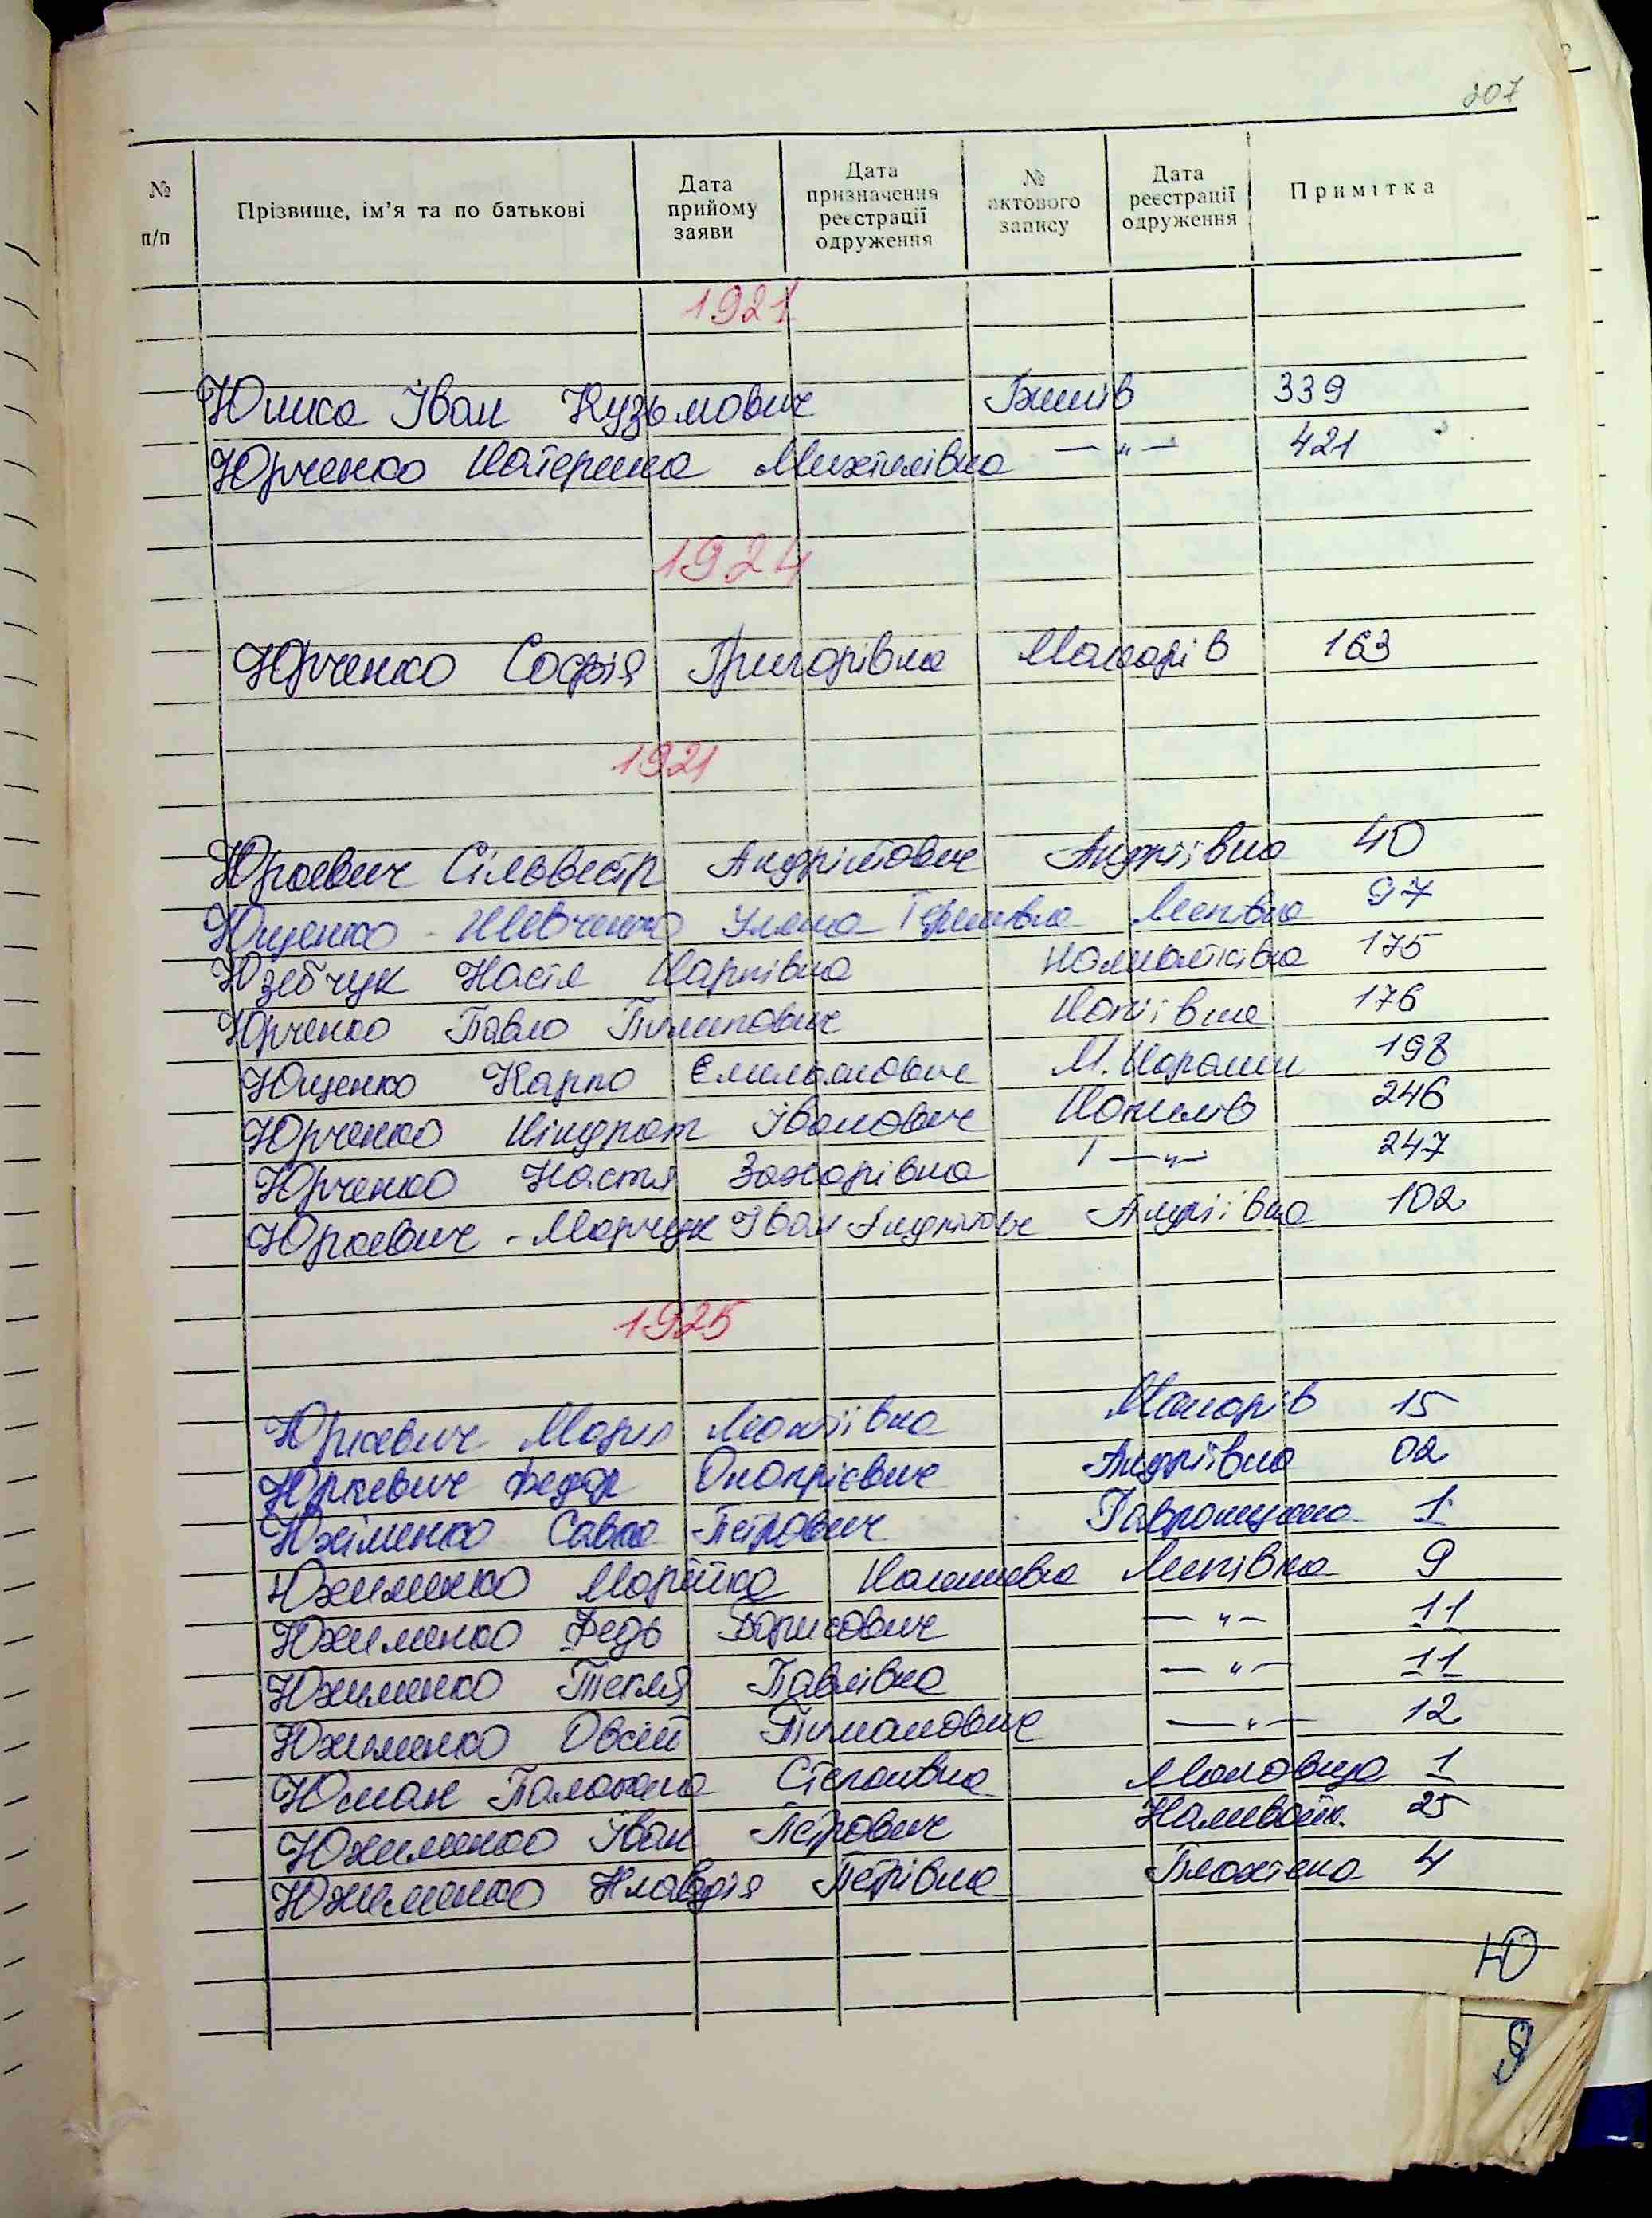 207
№ п/п Прізвище, ім’я та по батькові Дата прийому заяви Дата призначення реєстрації одруження № актового запису Дата реєстрації одруження Примітка
1921
Юшка Іван Кузьмович 339
Юрченко Катерина Михтелівна — „ — 421
1924
Юрченко Софія Григорівна Макарів 163
1921
Юркевич Сільвестр Андріївна 40
Ющенко - Шевченко Уляна Липівка 97
Юзебчук Настя Карпівна 175
Юрченко Павло Пилипович Копіївка 176
Ющенко Карпо Омелянович М. Карашин 198
Юрченко Кіндрат Іванович Копилів 246
Юрченко Настя Захарівна — „ — 247
Юркевич - Марчук Іван Андріївна 102
1925
Юркевич Марія Макарів 15
Юркевич Федор Онопрієвич Андріївна 02
Юхіменко Савка Петрович Гавронщина 1
Юхименко Марійка Липівка 9
Юхименко Федь Борисович — „ — 11
Юхименко Текля Павлівна — „ — 11
Юхименко Овсій — „ — 12
Юман Палажка Степанівна Маковище 1
Юхименко Іван Петрович Наливайк. 25
Юхименко Клавдія Петрівна 4
Ю
Я